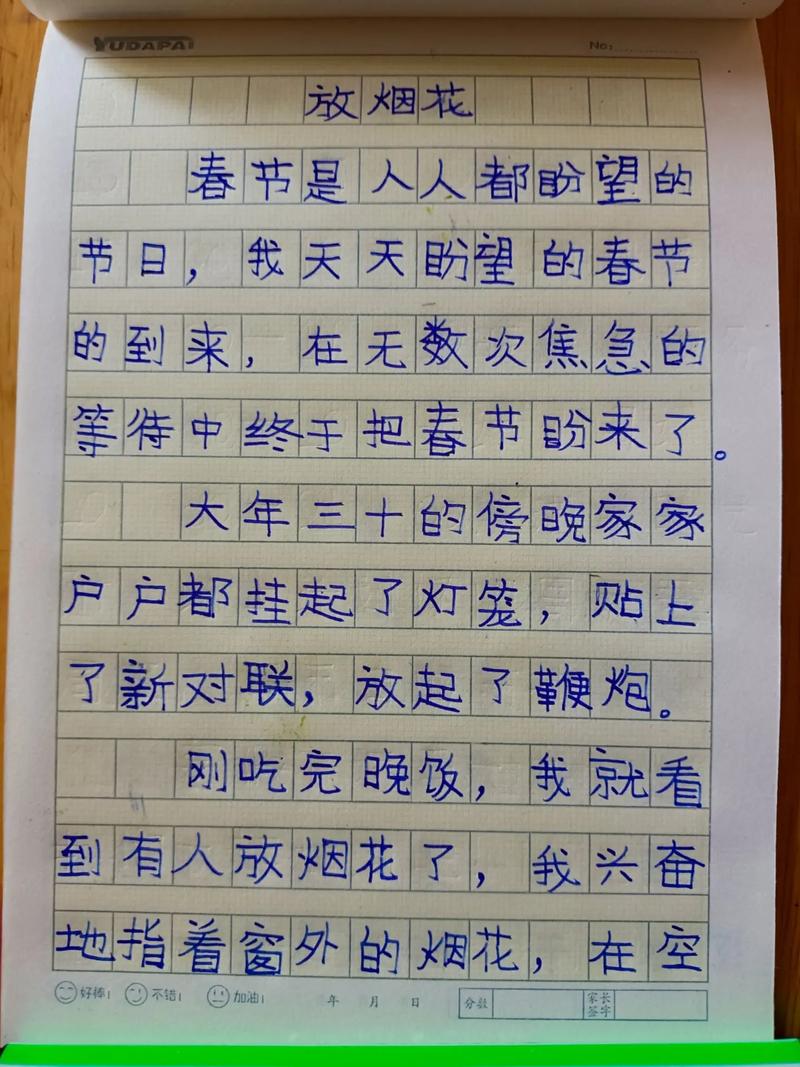 YUDAPAI
No:
放烟花
春节是人人都盼望的
节日，我天天盼望的春节
的到来，在无数次焦急的
等待中终于把春节盼来了。
大年三十的傍晚家家
户户都挂起了灯笼，贴上
了新对联，放起了鞭炮。
刚吃完晚饭，我就看
到有人放烟花了，我兴奋
地指着窗外的烟花，在空
好棒！ 不错！ 加油！ 年 月 日 分数 家长签字